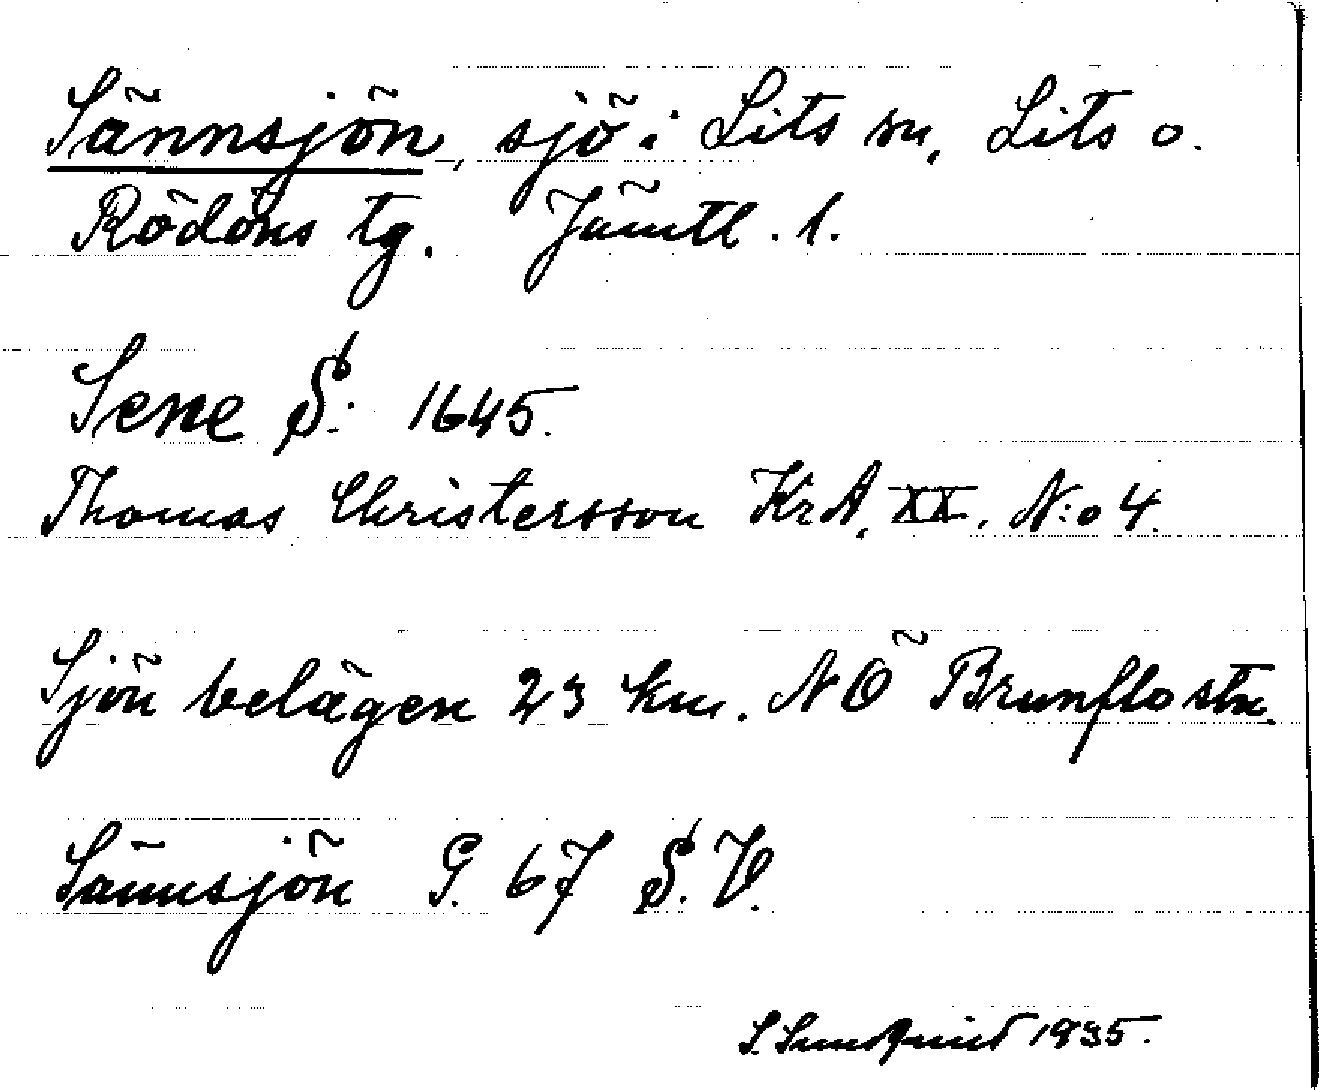 Sännsjön, sjö i Lits sn, Lits o.
Rödöns tg. Jämtl. l.
Sene S: 1645.
Thomas Christersson KrA, XX, N:o 4.
Sjön belägen 23 km. NÖ Brunflo stn.
Sännsjön G. 67 S.V.
S. Sundqvist 1935.